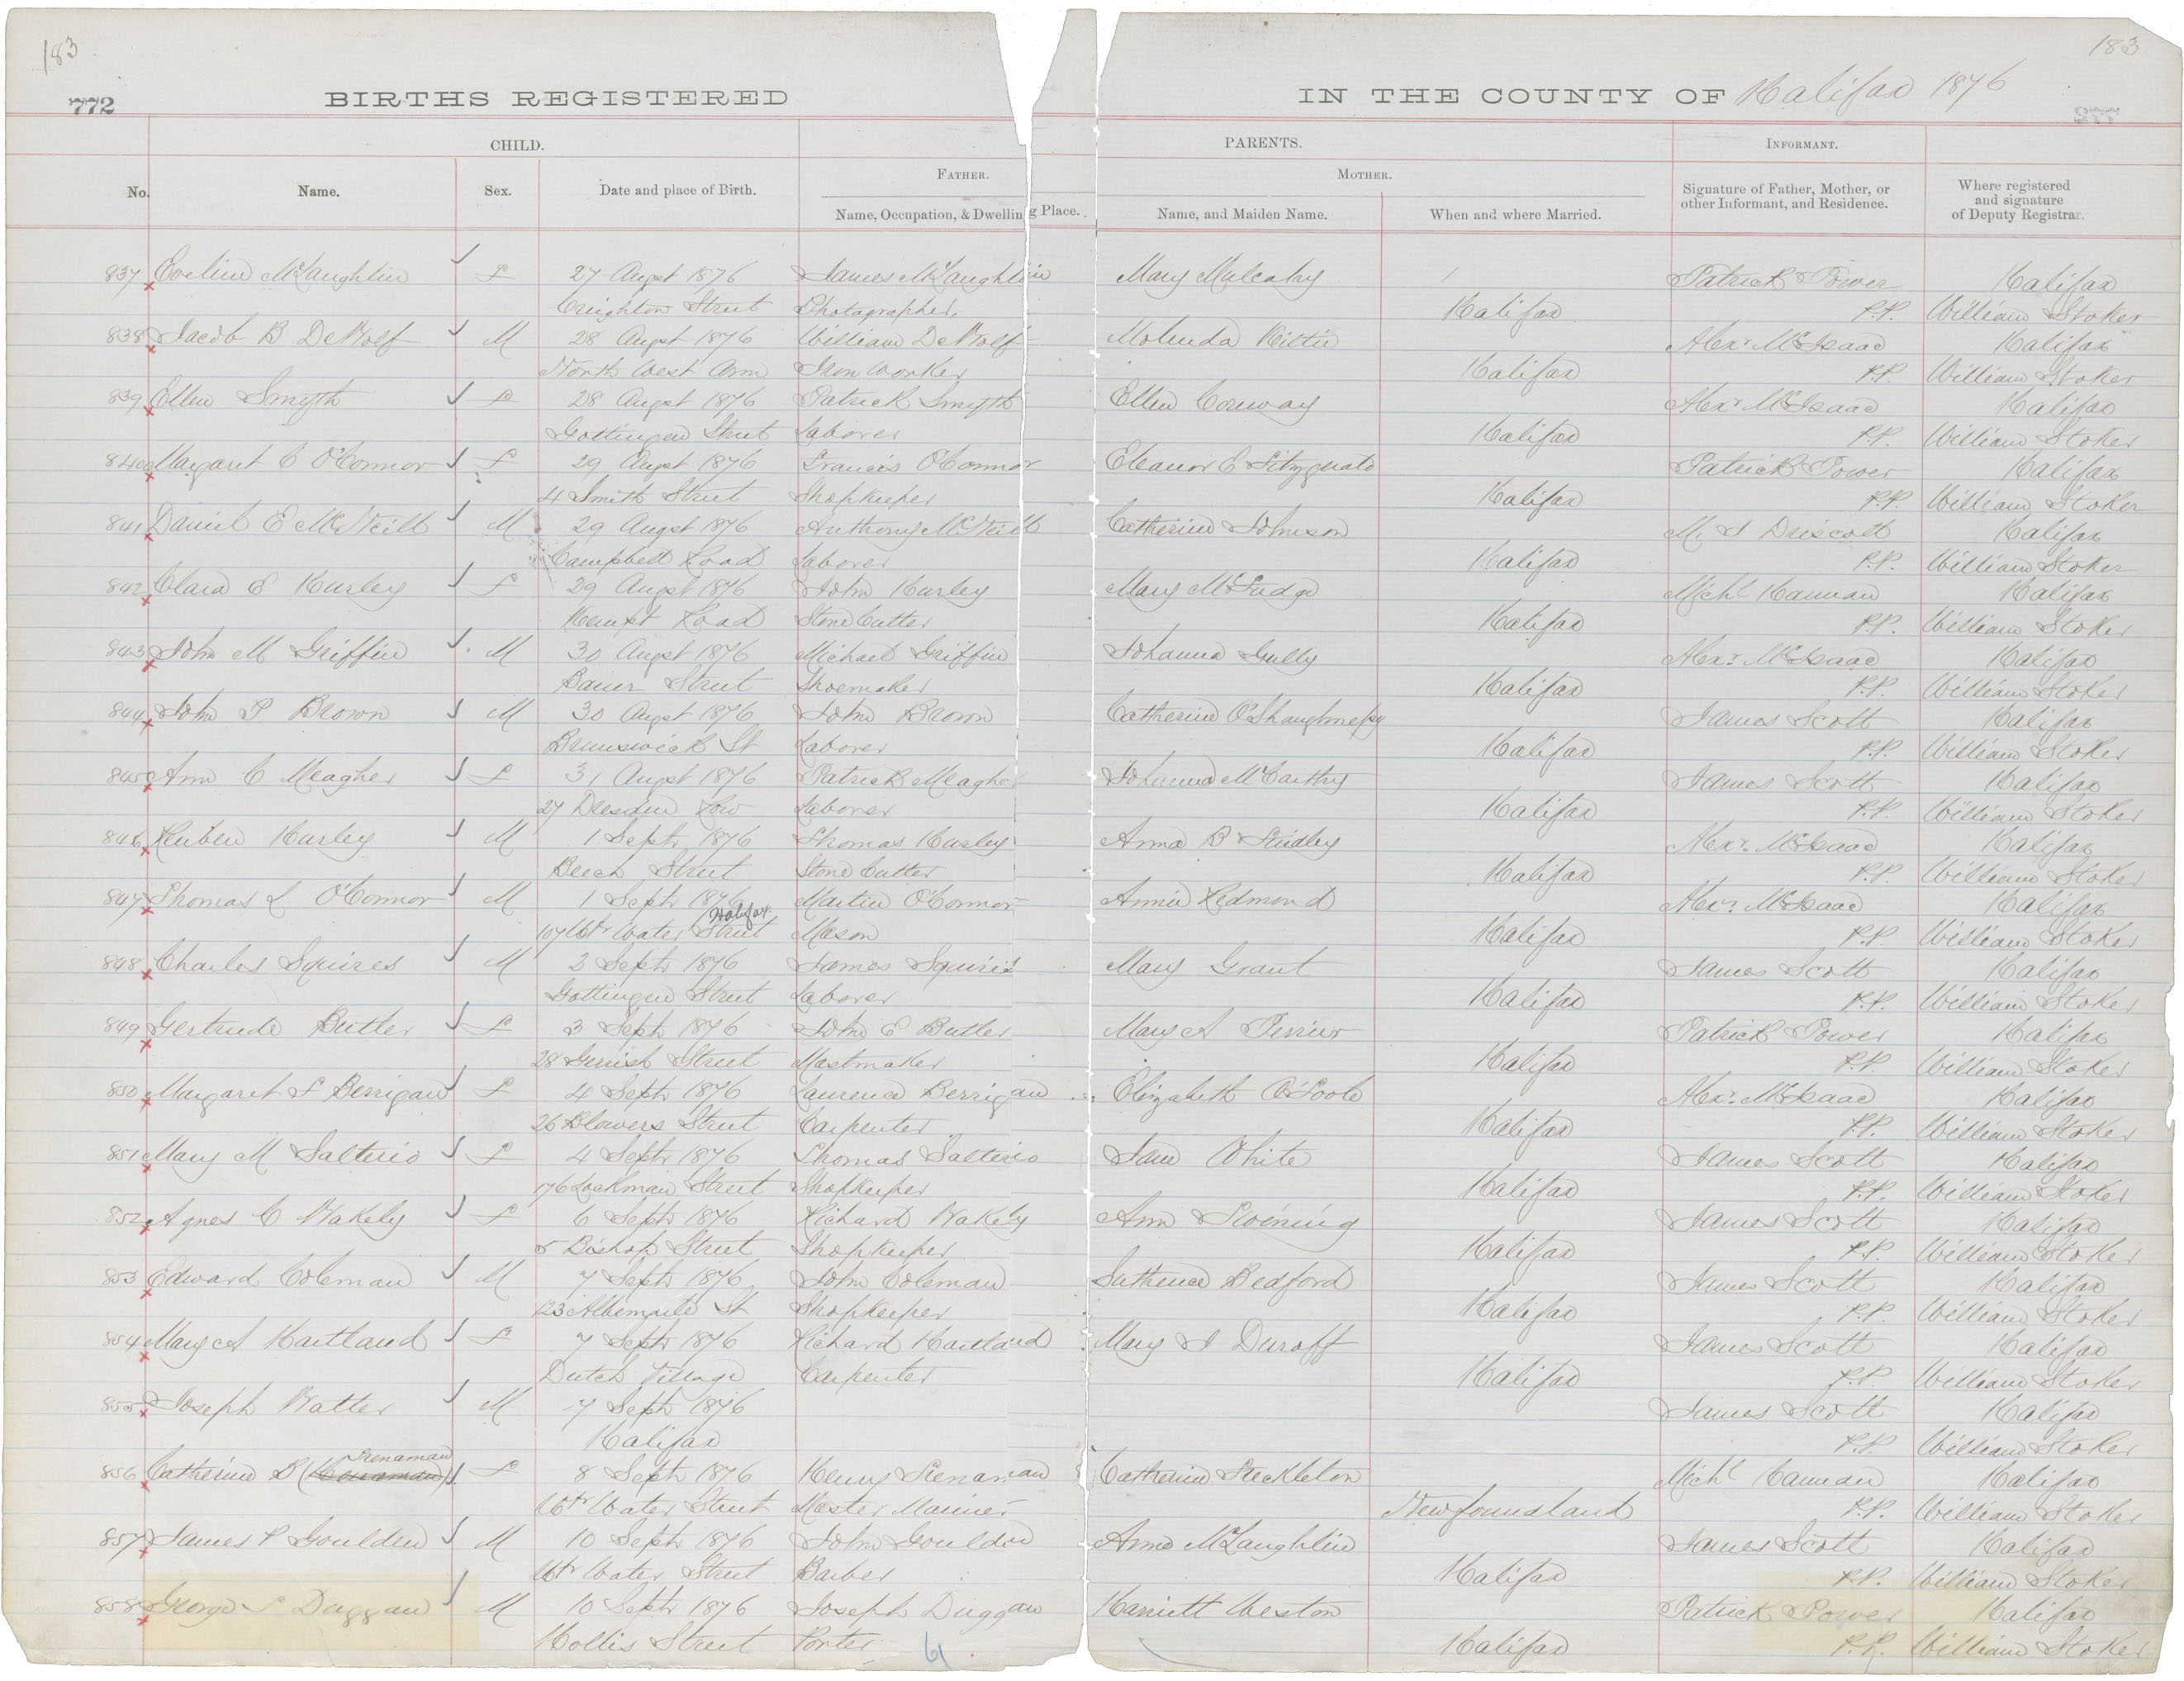 183
183
772
BIRTHS REGISTERED IN THE COUNTY OF Halifax 1876
CHILD. PARENTS. INFORMANT.
FATHER. MOTHER.
No. Name. Sex. Date and place of Birth. Name, Occupation, & Dwelling Place. Name, and Maiden Name. When and where Married. Signature of Father, Mother, or other Informant, and Residence. Where registered and signature of Deputy Registrar.
837 Eveline McLaughlin F 27 Augst 1876 James McLaughlin Mary Mulcahy Patrick Power Halifax
Creighton Street Photographer Halifax P.P. William Stoker
838 Jacob B DeWolf M 28 Augst 1876 William DeWolf Molinda Alexr McIsaac Halifax
North West Arm Iron Worker Halifax P.P. William Stoker
839 Ellen Smyth F 28 Augst 1876 Patrick Smyth Ellen Conway Alexr McIsaac Halifax
Gottingen Street Laborer Halifax P.P. William Stoker
840 Margaret C O'Connor F 29 Augst 1876 Francis O'Connor Eleanor E Fitzgerald Patrick Power Halifax
4 Smith Street Shopkeeper Halifax P.P. William Stoker
841 Daniel E McNeill M 29 Augst 1876 Anthony McNeill Catherine Johnson M. Driscoll Halifax
Campbell Road Laborer Halifax P.P. William Stoker
842 Clara E Hurley F 29 Augst 1876 John Hurley Mary McFudge Michl Hannan Halifax
Kempt Road Stone Cutter Halifax P.P. William Stoker
843 John M Griffin M 30 Augst 1876 Michael Griffin Johanna Gully Alexr McIsaac Halifax
Bauer Street Shoemaker Halifax P.P. William Stoker
844 John P Brown M 30 Augst 1876 John Brown Catherine O'Shaughnessy James Scott Halifax
Brunswick St Laborer Halifax P.P. William Stoker
845 Ann C Meagher F 31 Augst 1876 Patrick Meagher Johanna McCarthy James Scott Halifax
27 Dresden Row Laborer Halifax P.P. William Stoker
846 Reuben Hurley M 1 Septr 1876 Thomas Hurley Anna B Alexr. McIsaac Halifax
Beech Street Stone Cutter Halifax P.P. William Stoker
847 Thomas L O'Connor M 1 Septr 1876 Martin O'Connor Annie Redmond Alexr. McIsaac Halifax
107 Upr Water Street Halifax Mason Halifax P.P. William Stoker
848 Charles Squires M 3 Septr 1876 James Squires Mary Grant James Scott Halifax
Gottingen Street Laborer Halifax P.P. William Stoker
849 Gertrude Butler F 3 Septr 1876 John E Butler Mary A Perrier Patrick Power Halifax
28 Gerrish Street Mastmaker Halifax P.P. William Stoker
850 Margaret F Berrigan F 4 Septr 1876 Laurence Berrigan Elizabeth O'Toole Alexr. McIsaac Halifax
26 Blowers Street Carpenter Halifax P.P. William Stoker
851 Mary M Salterio F 4 Septr 1876 Thomas Salterio Jane White James Scott Halifax
176 Lockman Street Shopkeeper Halifax P.P. William Stoker
852 Agnes C Wakely F 6 Septr 1876 Richard Wakely Ann James Scott Halifax
5 Bishop Street Shopkeeper Halifax P.P. William Stoker
853 Edward Coleman M 7 Septr 1876 John Coleman Bedford James Scott Halifax
123 Albemarle St Shopkeeper Halifax P.P. William Stoker
854 Mary A Hartland F 7 Septr 1876 Richard Hartland Mary J Duroff James Scott Halifax
Dutch Village Carpenter Halifax P.P. William Stoker
855 Joseph Walter M 7 Septr 1876 James Scott Halifax
Halifax P.P. William Stoker
856 Catherine B Trenaman F 8 Septr 1876 Henry Trenaman Catherine Steckleton Michl Hannan Halifax
Upr Water Street Master Mariner Newfoundland P.P. William Stoker
857 James P Goulden M 10 Septr 1876 John Goulden Anna McLaughlin James Scott Halifax
Upr Water Street Barber Halifax P.P. William Stoker
858 George S Duggan M 10 Septr 1876 Joseph Duggan Harriett Weston Patrick Power Halifax
Hollis Street Porter Halifax P.P. William Stoker
61